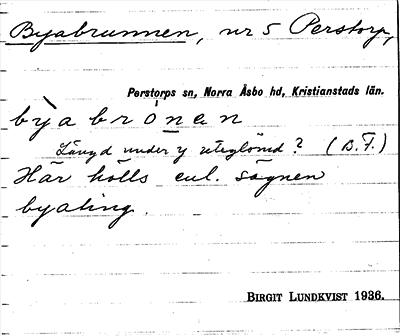 Byabrunnen, nr 5 Perstorp,
Perstorps sn, Norra Åsbo hd, Kristianstads län.
bỳabrónen
Längd under y uteglömd? (B.F.)
Här hölls enl. sägnen
byating.
BIRGIT LUNDKVIST 1936.